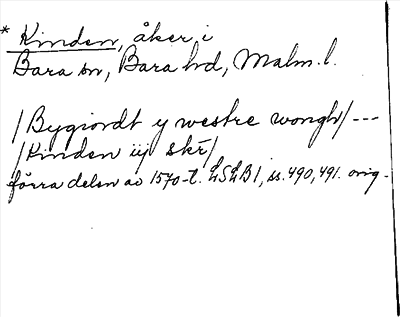 * Kinden, åker i
Bara sn, Bara hd, Malm. l.
/Bygiordt y westre wongh/ ---
/Kinden iij skr/
förra delen av 1570-t. LSLB1, ss. 490, 491. orig.